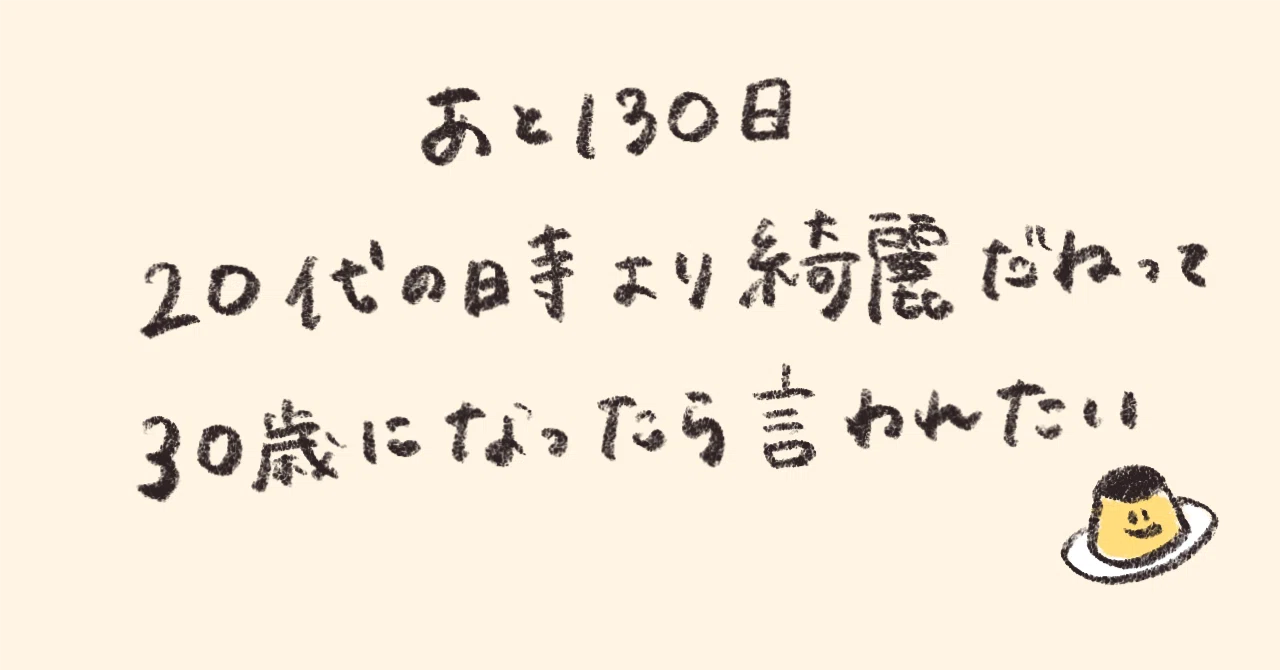 あと130日
20代の時より綺麗だねって
30歳になったら言われたい